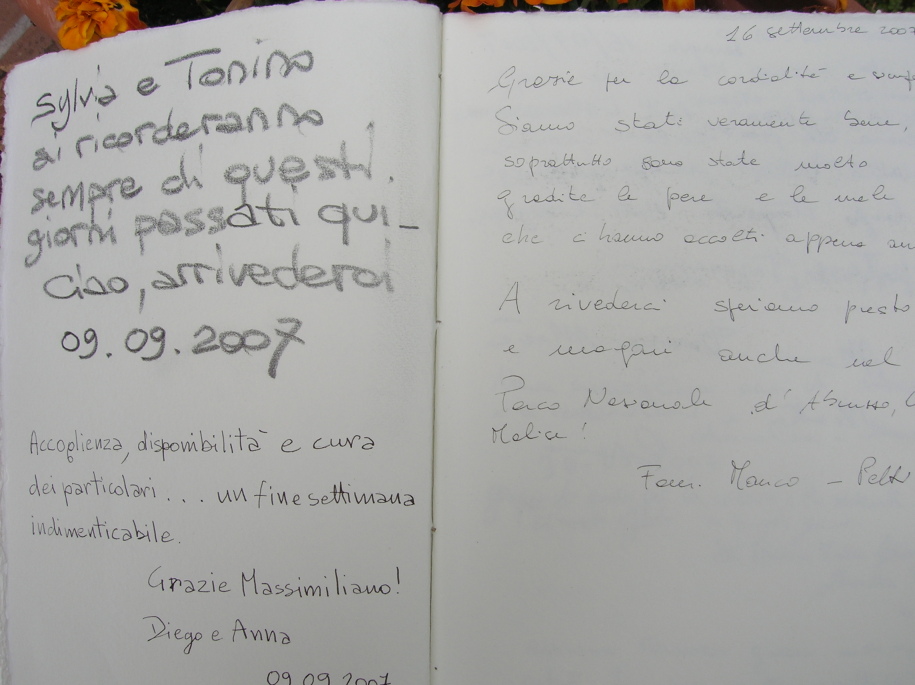 Sylvia e Tonino
si ricorderanno
sempre di questi
giorni passati qui_
Ciao, arrivederci
09.09.2007
Accoglienza, disponibilità e cura
dei particolari... un fine settimana
indimenticabile.
Grazie Massimiliano!
Diego e Anna
09.09.2007
16 settembre 2007
Grazie per la cordialità e
Siamo stati veramente bene,
soprattutto sono state molto
gradite le pere e le mele
che ci hanno accolti appena
A rivederci speriamo presto
e magari anche nel
Parco Nazionale d'Abruzzo,
Molise!
Fam. Manco -